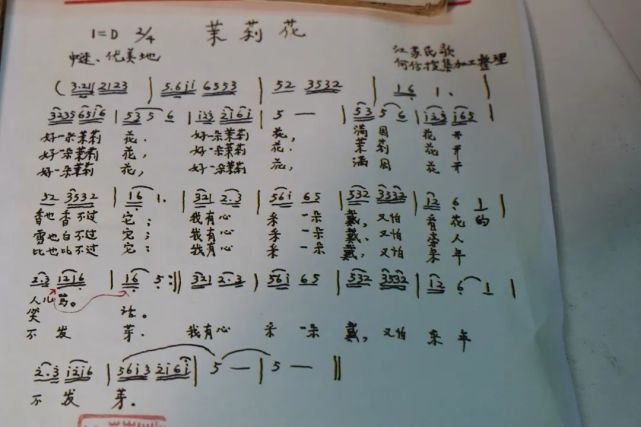 1=D 2/4 茉莉花
中速、优美地 江苏民歌
何仿搜集加工整理
( 3·21 2123 | 5·6i i 6553 | 52 3532 | 16 1. |
3235 656i6 | 53 5 6 | i23 2i6i | 5 — | 53 5 6 | i23 i65 |
好一朵茉莉 花, 好一朵茉莉 花, 满园 花开
好一朵茉莉 花, 好一朵茉莉 花, 茉莉 花开
好一朵茉莉 花, 好一朵茉莉 花, 满园 花开
52 3532 | 16 1. | 321 2·3 | 56i 65 | 532 3532 | 12 6 1 |
香也香不过 它; 我有心 采一朵 戴, 又怕 看花的
雪也白不过 它; 我有心 采一朵 戴, 又怕 旁人
比也比不过 它; 我有心 采一朵 戴, 又怕 来年
2·3 1216 | 16 5 :|| 321 2·3 | 56i 65 | 532 3532 | 12 6 1 |
人儿骂。
笑 话。
不发 芽. 我有心 采一朵 戴, 又怕 来年
2·3 i2i6 | 56i3 2i6i | 5 — | 5 — ||
不发 芽.